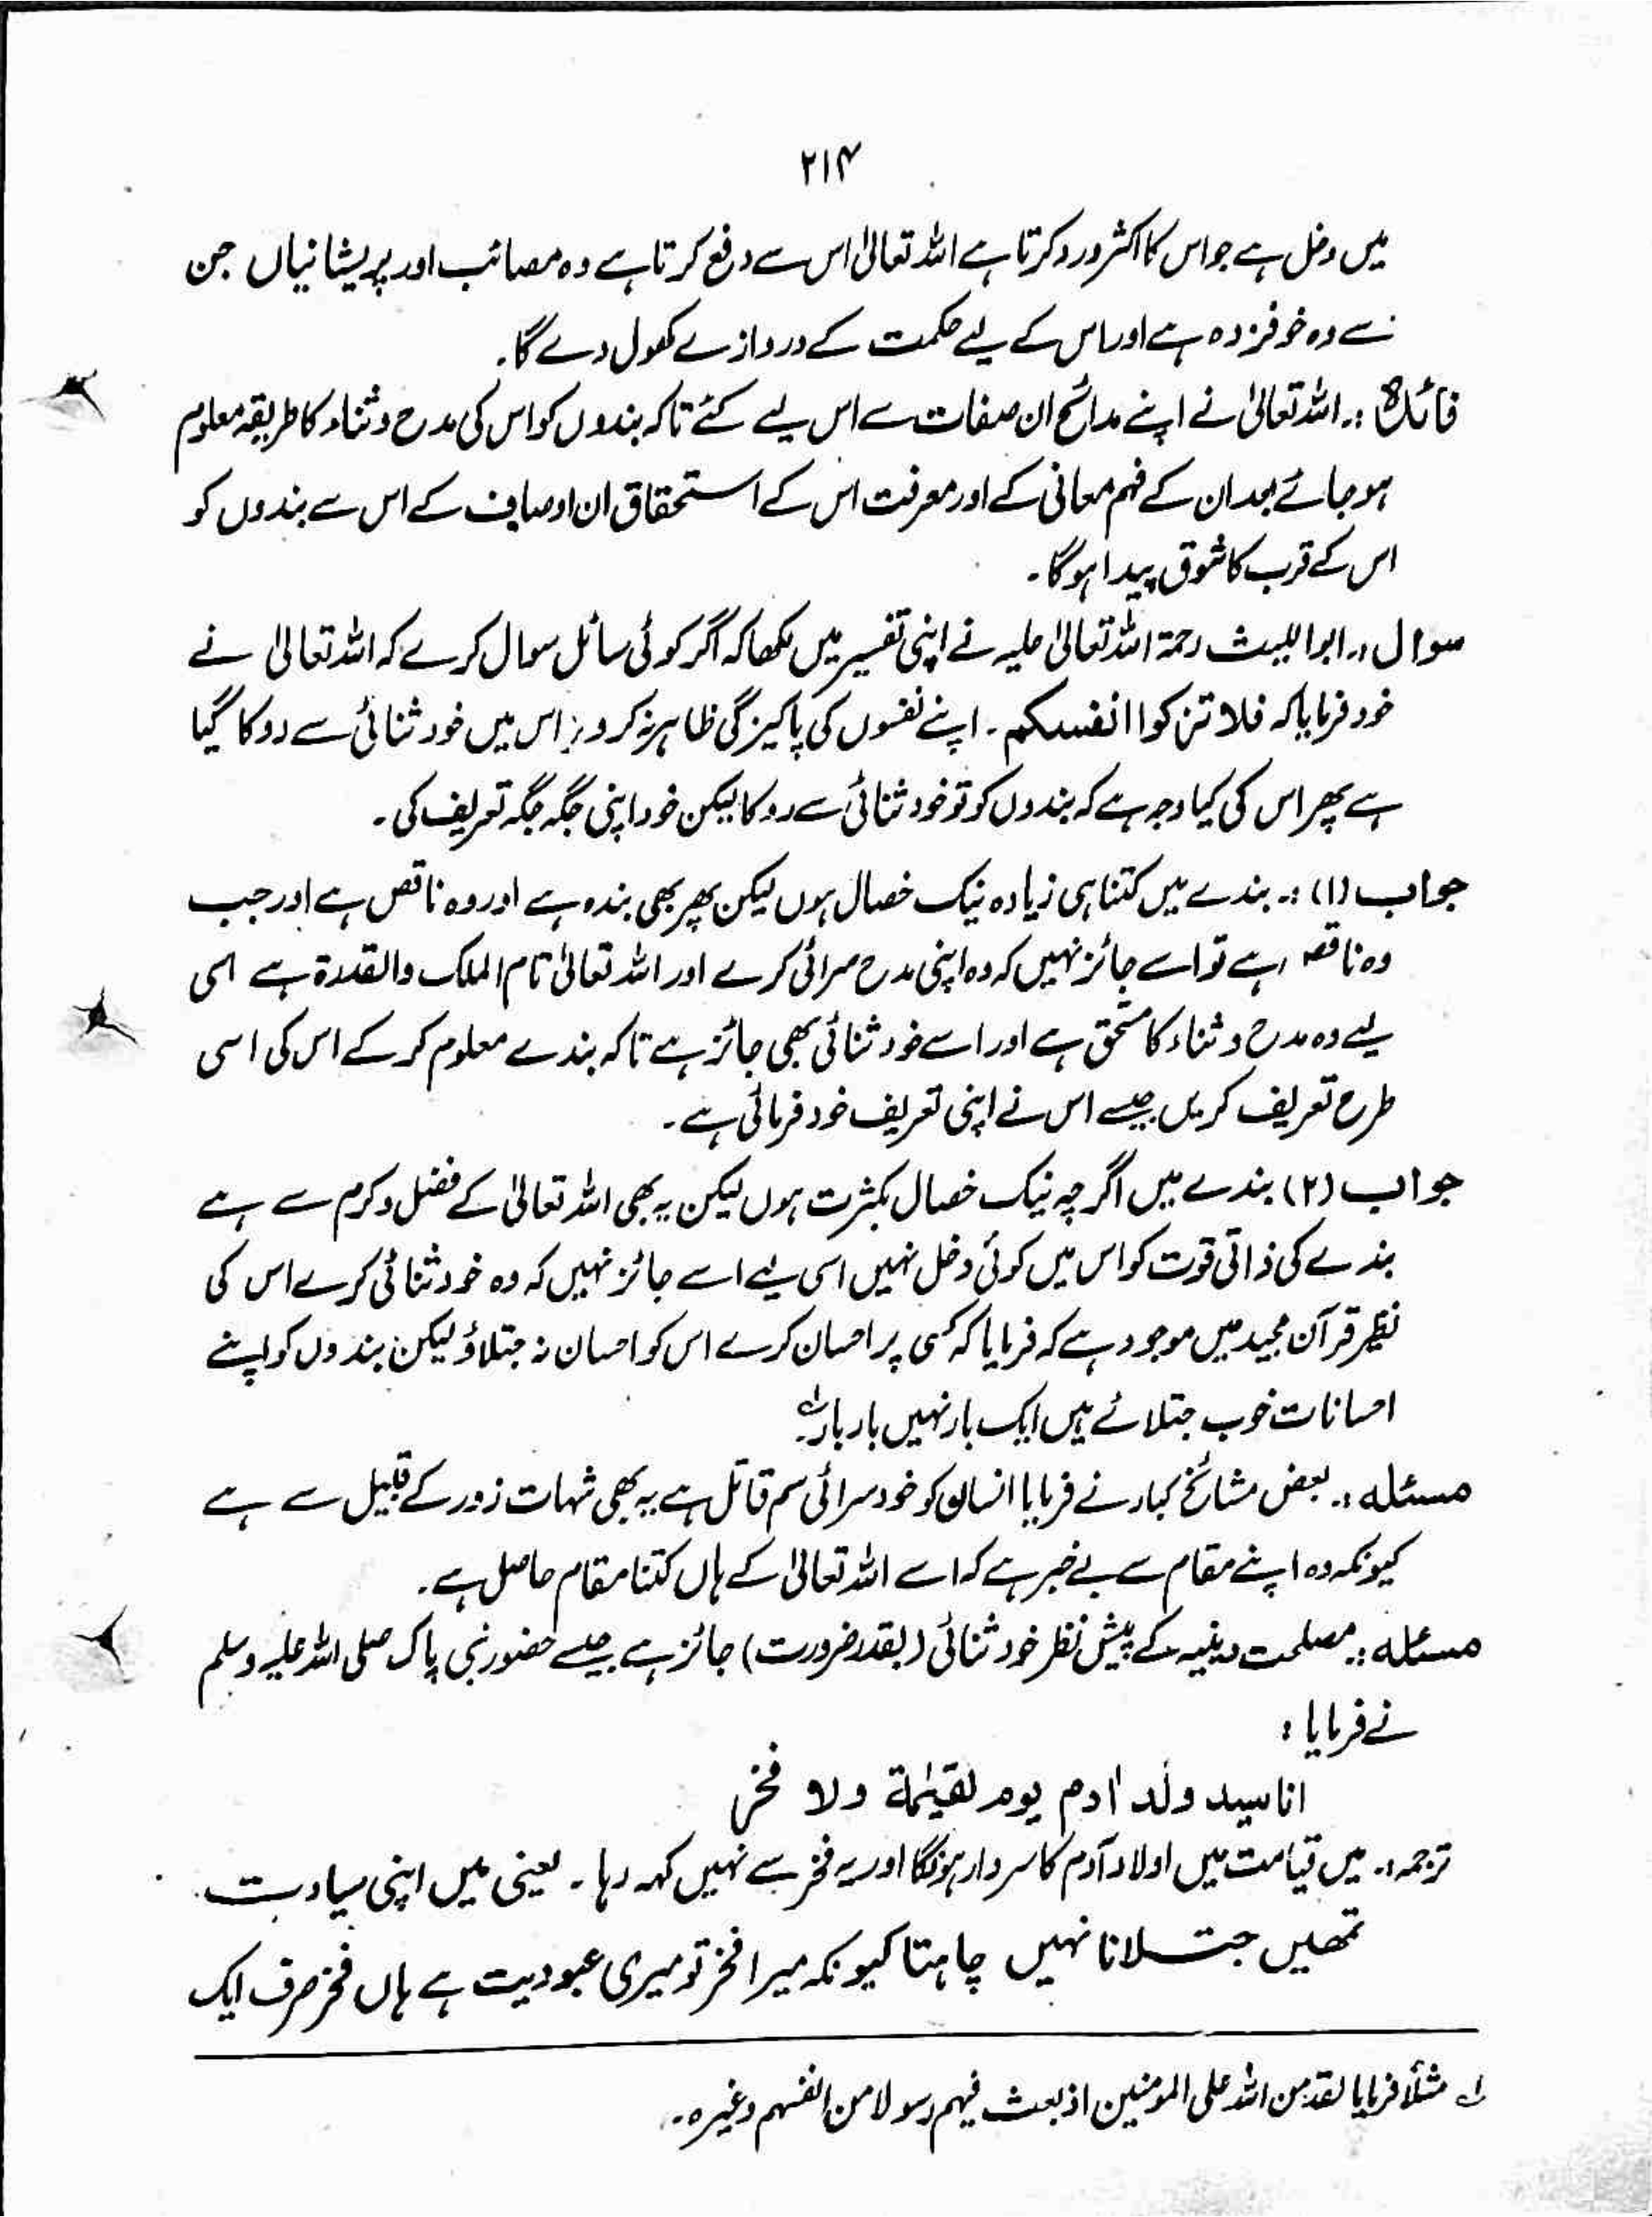 ۲۱۴
میں دخل ہے جو اس کا اکثر ورد کرتا ہے اللہ تعالیٰ اس سے دفع کرتا ہے وہ مصائب اور پریشانیاں جن
سے وہ خوفزدہ ہے اور اس کے لیے حکمت کے دروازے کھول دے گا۔
فائدہ :۔ اللہ تعالیٰ نے اپنے مدائح ان صفات سے اس لیے کئے تاکہ بندوں کو اس کی مدح و ثناء کا طریقہ معلوم
ہو جائے بعد ان کے فہم معانی کے اور معرفت اس کے استحقاق ان اوصاف کے اس سے بندوں کو
اس کے قرب کا شوق پیدا ہوگا۔
سوال :۔ ابو اللیث رحمۃ اللہ تعالیٰ علیہ نے اپنی تفسیر میں لکھا کہ اگر کوئی سائل سوال کرے کہ اللہ تعالیٰ نے
خود فرمایا کہ فلا تزکوا انفسکم۔ اپنے نفسوں کی پاکیزگی ظاہر نہ کرو۔ اس میں خود ثنائی سے روکا گیا
ہے پھر اس کی کیا وجہ ہے کہ بندوں کو تو خود ثنائی سے روکا لیکن خود اپنی جگہ جگہ تعریف کی۔
جواب (۱) :۔ بندے میں کتنا ہی زیادہ نیک خصال ہوں لیکن پھر بھی بندہ ہے اور وہ ناقص ہے اور جب
وہ ناقص ہے تو اسے جائز نہیں کہ وہ اپنی مدح سرائی کرے اور اللہ تعالیٰ تام الملک والقدرۃ ہے اسی
لیے وہ مدح و ثناء کا مستحق ہے اور اسے خود ثنائی بھی جائز ہے تاکہ بندے معلوم کر کے اس کی اسی
طرح تعریف کریں جیسے اس نے اپنی تعریف خود فرمائی ہے۔
جواب (۲) بندے میں اگرچہ نیک خصال بکثرت ہوں لیکن یہ بھی اللہ تعالیٰ کے فضل و کرم سے ہے
بندے کی ذاتی قوت کو اس میں کوئی دخل نہیں اسی لیے اسے جائز نہیں کہ وہ خود ثنائی کرے اس کی
نظیر قرآن مجید میں موجود ہے کہ فرمایا کہ کسی پر احسان کرے اس کو احسان نہ جتلاؤ لیکن بندوں کو اپنے
احسانات خوب جتلائے ہیں ایک بار نہیں بار بار۔ ؎۱
مسئلہ :۔ بعض مشائخ کبار نے فرمایا انسان کو خود سرائی سم قاتل ہے یہ بھی شہات زور کے قبیل سے ہے
کیونکہ وہ اپنے مقام سے بے خبر ہے کہ اسے اللہ تعالیٰ کے ہاں کتنا مقام حاصل ہے۔
مسئلہ :۔ مصلحت دینیہ کے پیش نظر خود ثنائی (بقدر ضرورت) جائز ہے جیسے حضور نبی پاک صلی اللہ علیہ وسلم
نے فرمایا :
انا سید ولد اٰدم یوم لقیٰمۃ ولا فخر
ترجمہ :۔ میں قیامت میں اولاد آدم کا سردار ہونگا اور یہ فخر سے نہیں کہہ رہا۔ یعنی میں اپنی سیادت
تمھیں جتلانا نہیں چاہتا کیونکہ میرا فخر تو میری عبودیت ہے ہاں فخر صرف ایک
؎۱ مثلاً فرمایا لقد من اللہ علی المومنین اذ بعث فیہم رسولا من انفسہم وغیرہ۔